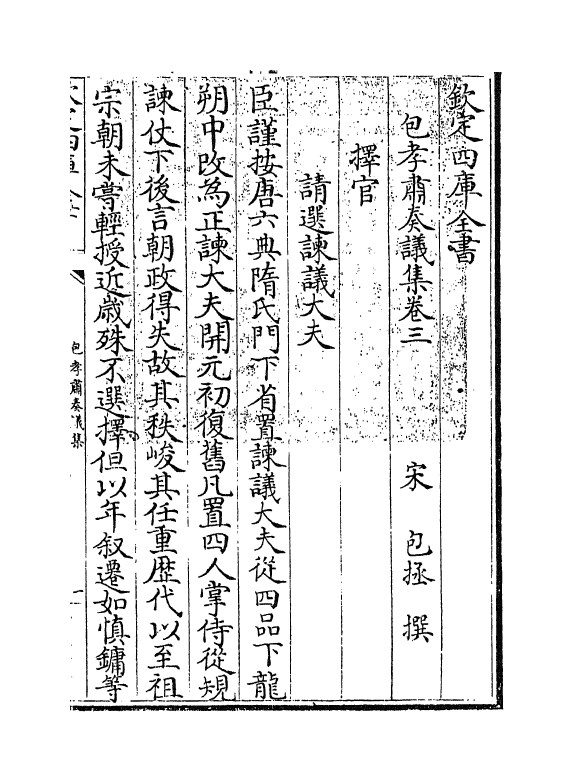 欽定四庫全書
包孝肅奏議集卷三
宋 包拯 撰
擇官
請選諫議大夫
臣謹按唐六典隋氏門下省置諫議大夫從四品下龍
朔中改為正諫大夫開元初復舊凡置四人掌侍從規
諫仗下後言朝政得失故其秩峻其任重歴代以至祖
宗朝未嘗輕授近嵗殊不選擇但以年叙遷如慎鏞等
包孝肅奏議集